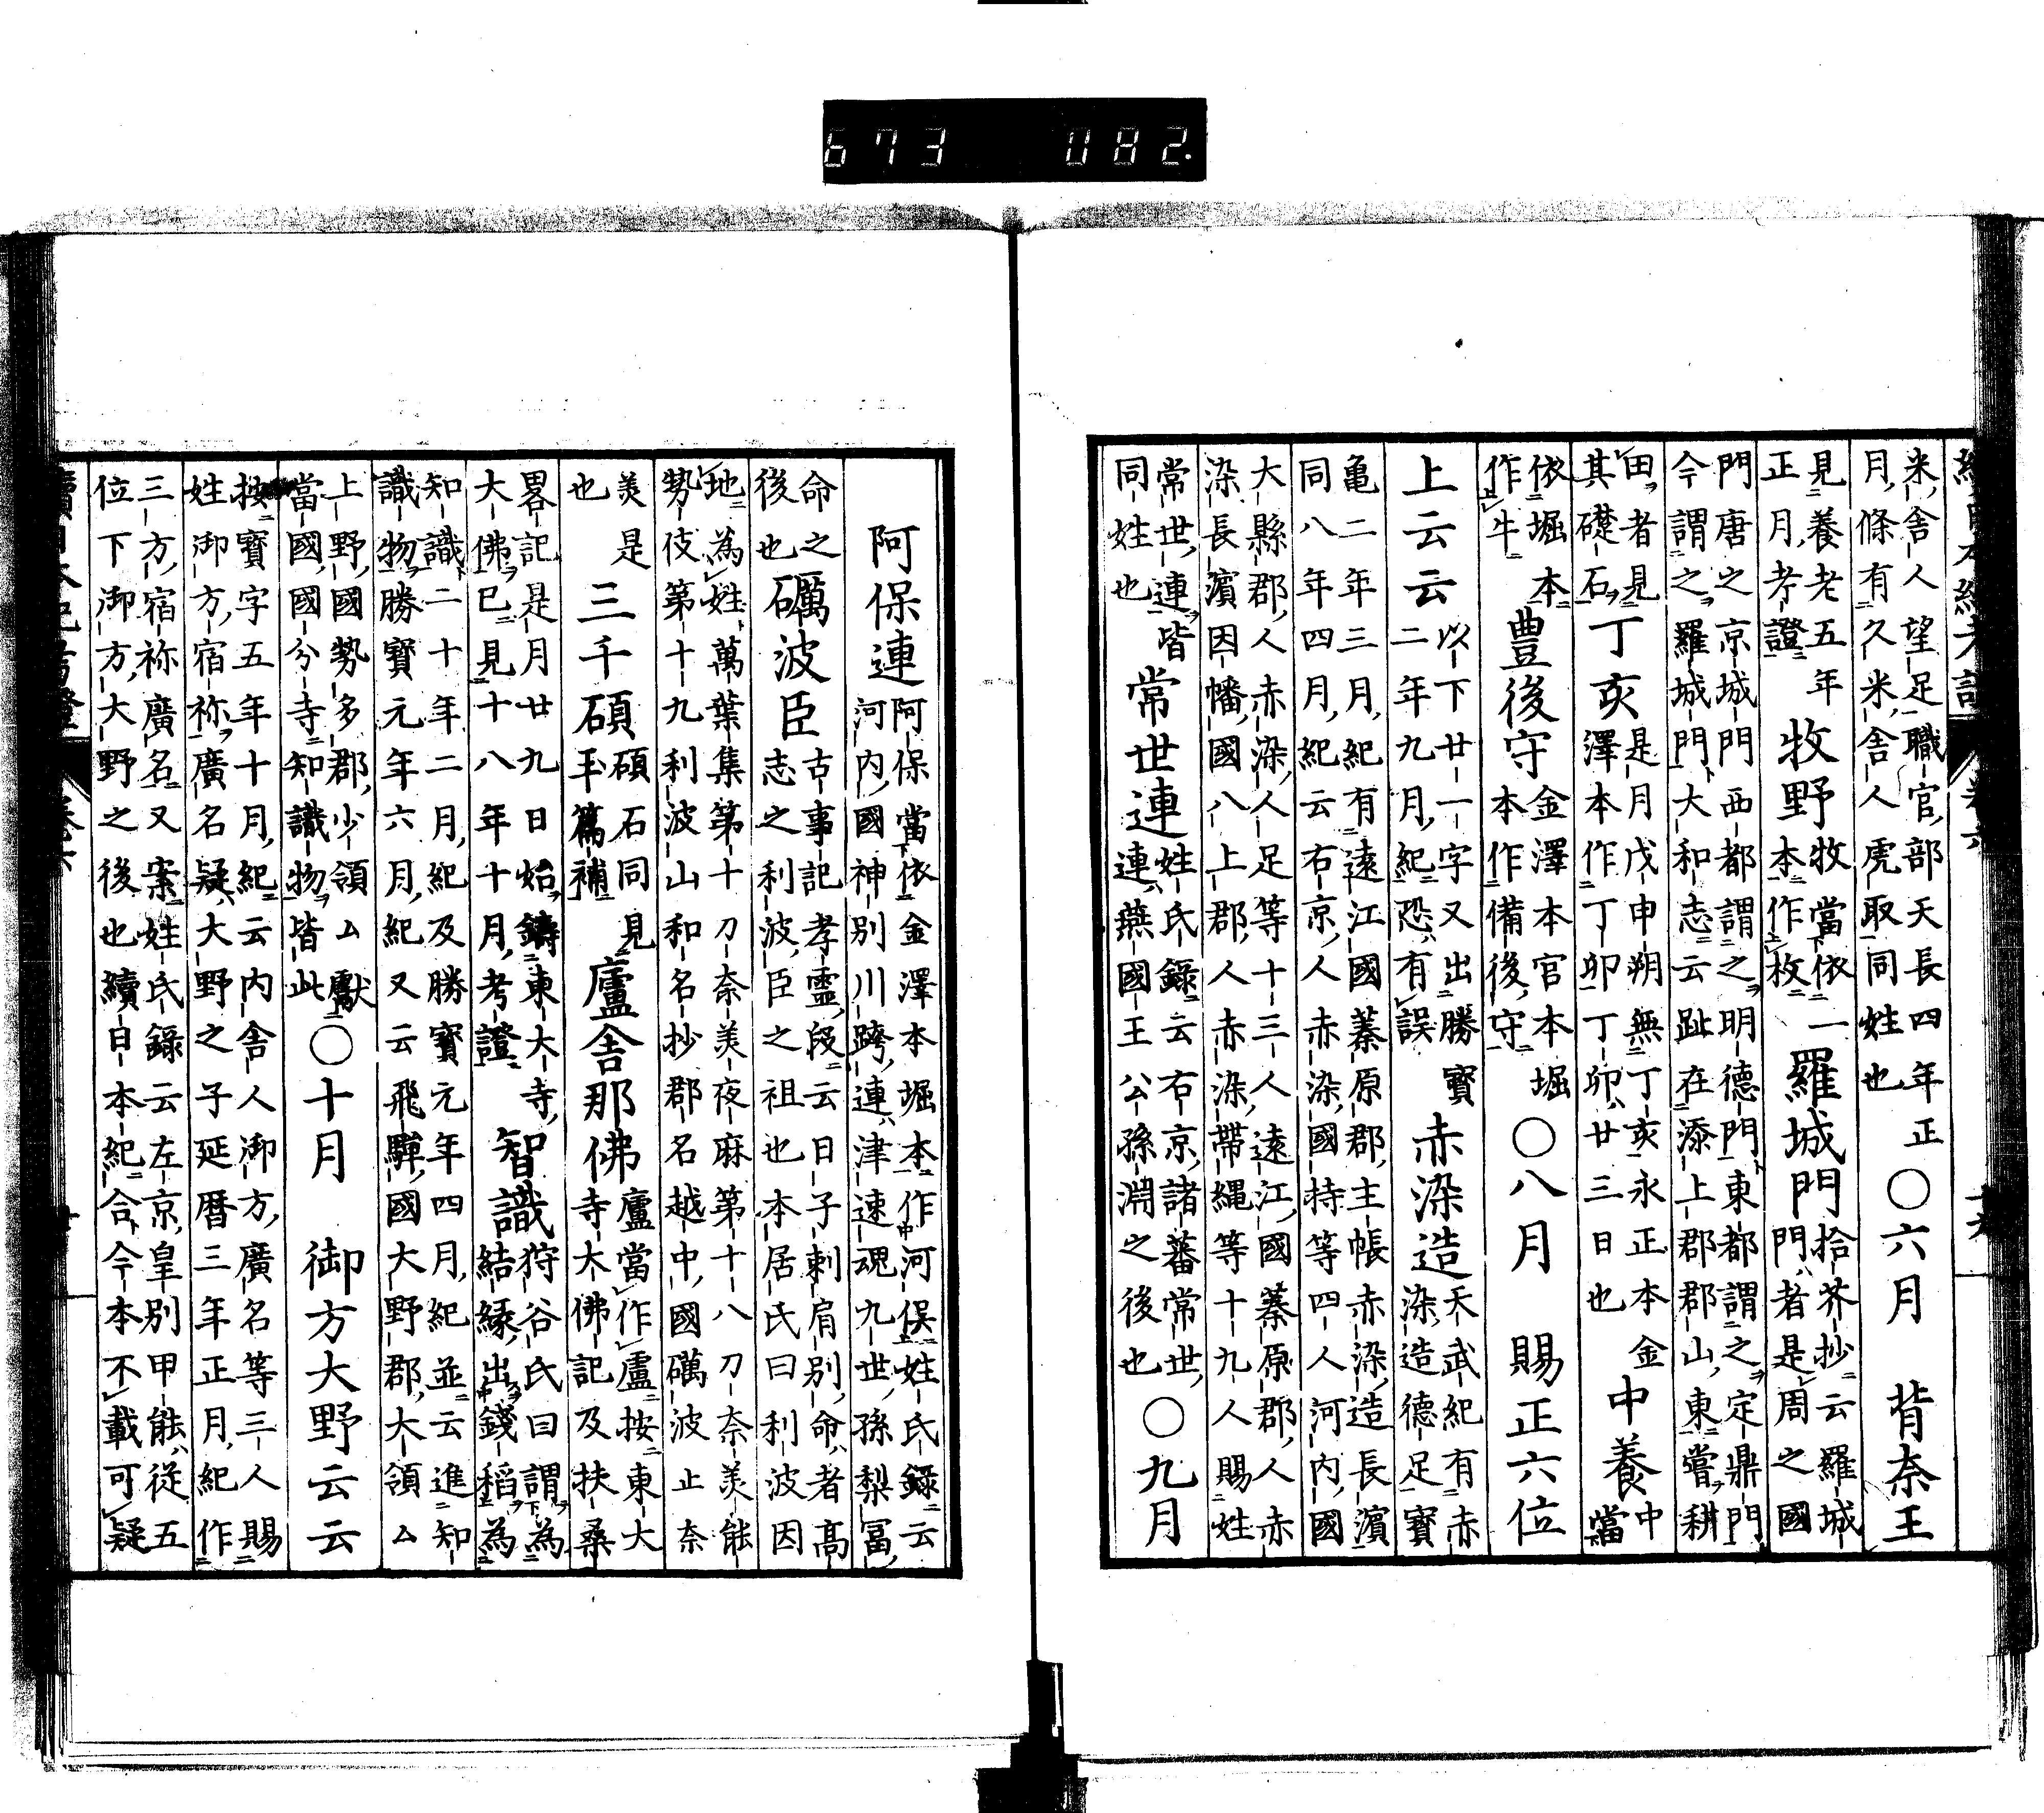 673 082.
米舎人望足職官部天長四年正
月條有久米舎人虎取同姓也
○六月 背奈王
見養老五年
正月考證
牧野
牧當依一
本作枚
羅城門
拾芥抄云羅城
門者是周之國
門唐之京城門西都謂之明德門東都謂之定鼎門
今謂之羅城門大和志云趾在添上郡郡山東嘗耕
田者見
其礎石
丁亥
是月戊申朔無丁亥永正本金
澤本作丁卯丁卯廿三日也
中養
中當
依堀本
作牛
豊後守
金澤本官本堀
本作備後守
○八月 賜正六位
上云云
以下廿一字又出勝寳
二年九月紀恐有誤
赤染造
天武紀有赤
染造德足寳
亀二年三月紀有遠江國蓁原郡主帳赤染造長濵
同八年四月紀云右京人赤染國持等四人河内國
大縣郡人赤染人足等十三人遠江國蓁原郡人赤
染長濵因幡國八上郡人赤染帶縄等十九人賜姓
常世連皆
同姓也
常世連
姓氏錄云右京諸蕃常世
連燕國王公孫淵之後也
○九月
阿保連
阿保當依金澤本堀本作河俣姓氏録云
河内國神別川跨連津速魂九世孫梨冨
命之
後也
礪波臣
古事記孝靈段云日子刺肩別命者髙
志之利波臣之祖也本居氏曰利波因
地為姓萬葉集第十刀奈美夜麻第十八刀奈美能
勢伎第十九利波山和名抄郡名越中國礪波止奈
美是
也
三千碩
碩石同見
玉篇補
廬舎那佛
廬當作盧按東大
寺大佛記及扶桑
畧記是月廿九日始鑄東大寺
大佛已見十八年十月考證
智識
狩谷氏曰謂為
結緣出錢稻為
知識二十年二月紀及勝寳元年四月紀並云進知
識物勝寳元年六月紀又云飛驒國大野郡大領ム
上野國勢多郡少領ム獻
當國國分寺知識物皆此
○十月 御方大野云云
按寳字五年十月紀云内舎人御方廣名等三人賜
姓御方宿祢廣名疑大野之子延暦三年正月紀作
三方宿祢廣名又案姓氏錄云左京皇別甲能從五
位下御方大野之後也續日本紀合今本不載可疑